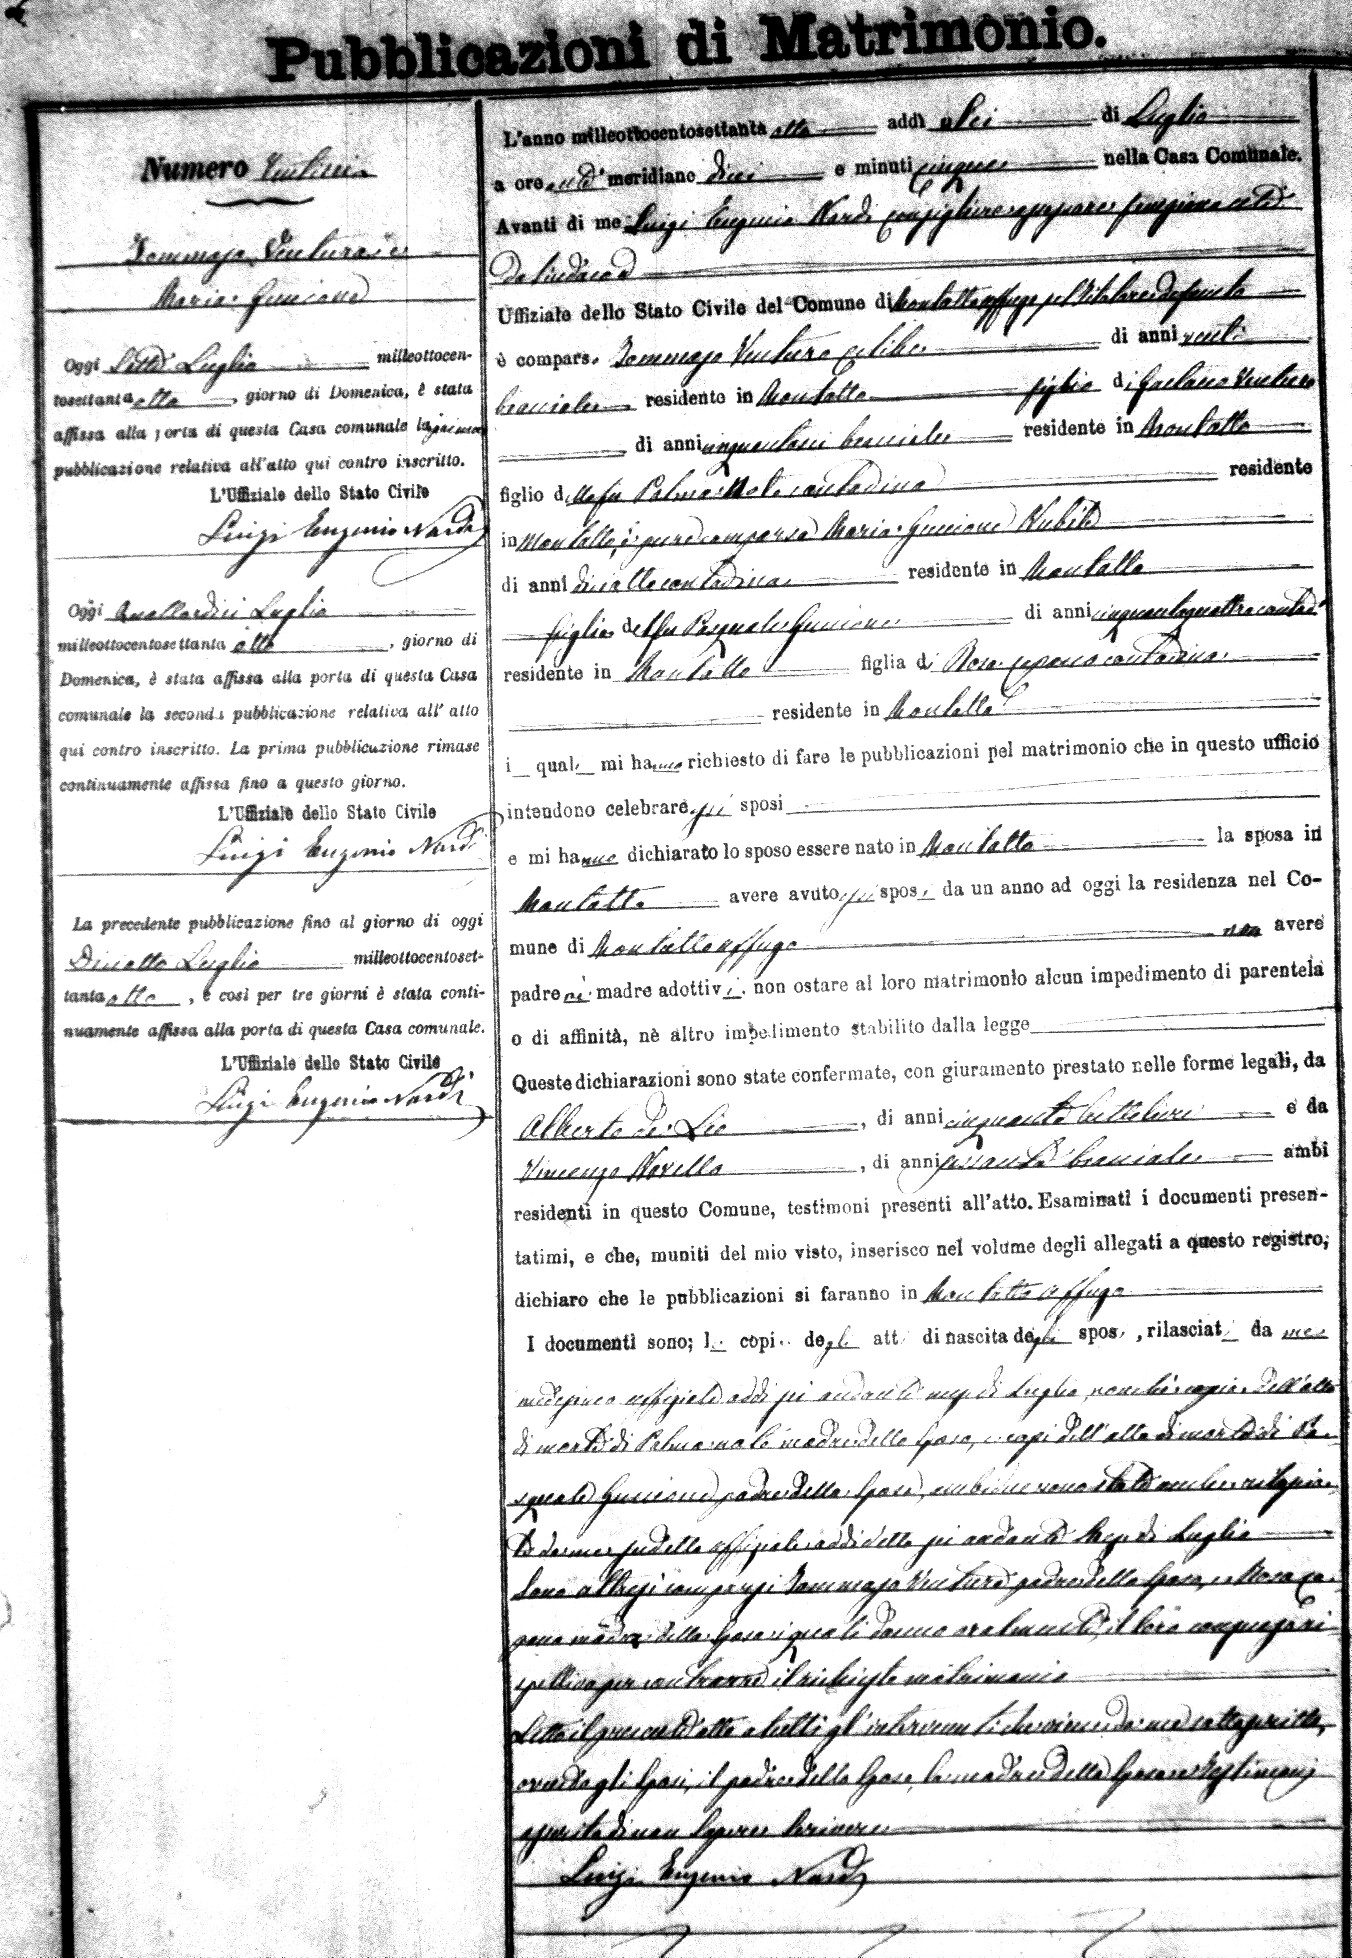 Pubblicazioni di Matrimonio.
Numero
Tommaso Ventura e
Maria Guccione
Oggi Sette Luglio milleottocen-
tosettanta otto, giorno di Domenica, è stata
affissa alla porta di questa Casa comunale la prima
pubblicazione relativa all'atto qui contro inscritto.
L'Uffiziale dello Stato Civile
Luigi Eugenio Nardi
Oggi Quattordici Luglio
milleottocentosettanta otto, giorno di
Domenica, è stata affissa alla porta di questa Casa
comunale la seconda pubblicazione relativa all'atto
qui contro inscritto. La prima pubblicazione rimase
continuamente affissa fino a questo giorno.
L'Uffiziale dello Stato Civile
Luigi Eugenio Nardi
La precedente pubblicazione fino al giorno di oggi
Diciotto Luglio milleottocentoset-
tanta otto, e così per tre giorni è stata conti-
nuamente affissa alla porta di questa Casa comunale.
L'Uffiziale dello Stato Civile
Luigi Eugenio Nardi
L'anno milleottocentosettanta otto addì sei di Luglio
a ore anti meridiane dieci e minuti cinque nella Casa Comunale.
Avanti di me Luigi Eugenio Nardi Consigliere funzionante
da Sindaco
Uffiziale dello Stato Civile del Comune di Montalto Uffugo pel titolare defunto
è compars. Tommaso Ventura celibe di anni venti
bracciale residente in Montalto figlio di Gaetano Ventura
di anni cinquantasei bracciale residente in Montalto
figlio della fu Palma Nota contadina residente
in Montalto, è pure comparsa Maria Guccione Nubile
di anni diciotto contadina residente in Montalto
figlia del fu Pasquale Guccione di anni cinquantaquattro
residente in Montalto figlia di Rosa contadina
residente in Montalto
i quali mi hanno richiesto di fare le pubblicazioni pel matrimonio che in questo ufficio
intendono celebrare gli sposi
e mi hanno dichiarato lo sposo essere nato in Montalto la sposa in
Montalto avere avuto gli sposi da un anno ad oggi la residenza nel Co-
mune di Montalto Uffugo non avere
padre nè madre adottivi, non ostare al loro matrimonio alcun impedimento di parentela
o di affinità, nè altro impedimento stabilito dalla legge
Queste dichiarazioni sono state confermate, con giuramento prestato nelle forme legali, da
Alberto de Leo, di anni cinquanta e da
Vincenzo Novello, di anni sessanta bracciale ambi
residenti in questo Comune, testimoni presenti all'atto. Esaminati i documenti presen-
tatimi, e che, muniti del mio visto, inserisco nel volume degli allegati a questo registro,
dichiaro che le pubblicazioni si faranno in Montalto Uffugo
I documenti sono; le copie degli atti di nascita degli sposi, rilasciati da me
medesimo uffiziale addì sei andante mese di Luglio, nonchè copia dell'atto
di morte di Palma madre dello sposo, e copia dell'atto di morte di Pa-
squale Guccione padre della sposa, ambidue sono state anche rilascia-
te da me suddetto uffiziale addì detto sei andante Mese di Luglio
Sono altresì comparsi Tommaso Ventura padre dello sposo, e Rosa
madre della sposa i quali danno oralmente il loro consenso ri-
spettivo per contrarre il richiesto matrimonio
Letto il presente atto a tutti gl'intervenuti che viene da me sottoscritto,
avendo gli sposi, il padre dello sposo, la madre della sposa e testimoni
asserito di non sapere scrivere
Luigi Eugenio Nardi